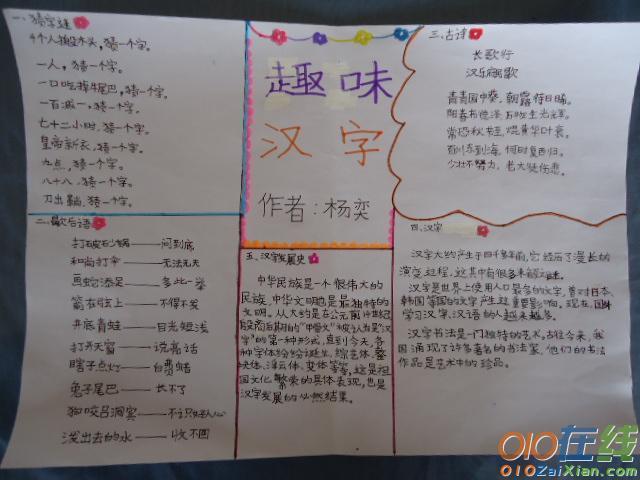 一、猜字谜
4个人搬木头,猜一个字。
一人,猜一个字。
一口吃掉牛尾巴,猜一个字。
一百减一,猜一个字。
七十二小时,猜一个字。
皇帝新衣,猜一个字。
九点,猜一个字。
八十八,猜一个字。
刀出鞘,猜一个字。
二、歇后语
打破砂锅——问到底
和尚打伞——无法无天
画蛇添足——多此一举
箭在弦上——不得不发
井底青蛙——目光短浅
打开天窗——说亮话
瞎子点灯——白费蜡
兔子尾巴——长不了
狗咬吕洞宾——不识好人心
泼出去的水——收不回
趣味
汉字
作者:杨奕
三、古诗
长歌行
汉乐府民歌
青青园中葵,朝露待日晞。
阳春布德泽,万物生光辉。
常恐秋节至,焜黄华叶衰。
百川东到海,何时复西归。
少壮不努力,老大徒伤悲。
四、汉字
汉字大约产生于四千多年前,它经历了漫长的
演变过程,这其中有很多未解之谜。
汉字是世界上使用人口最多的文字,曾对日本、
韩国等国的文字产生过重要影响。现在,国外
学习汉字、汉语的人越来越多。
汉字书法是一门独特的艺术,古往今来,我
国涌现了许多著名的书法家,他们的书法
作品是艺术中的珍品。
五、汉字发展史
中华民族是一个很伟大的
民族,中华文明也是最独特的
文明。从大约是在公元前14世纪
殷商后期的“甲骨文”被认为是“汉
字”的第一种形式,直到今天,各
种字体纷纷诞生,综艺体、整
块体、浮云体、变体等等,这是祖
国文化繁荣的具体表现,也是
汉字发展的必然结果。
010在线
010ZaiXian.com